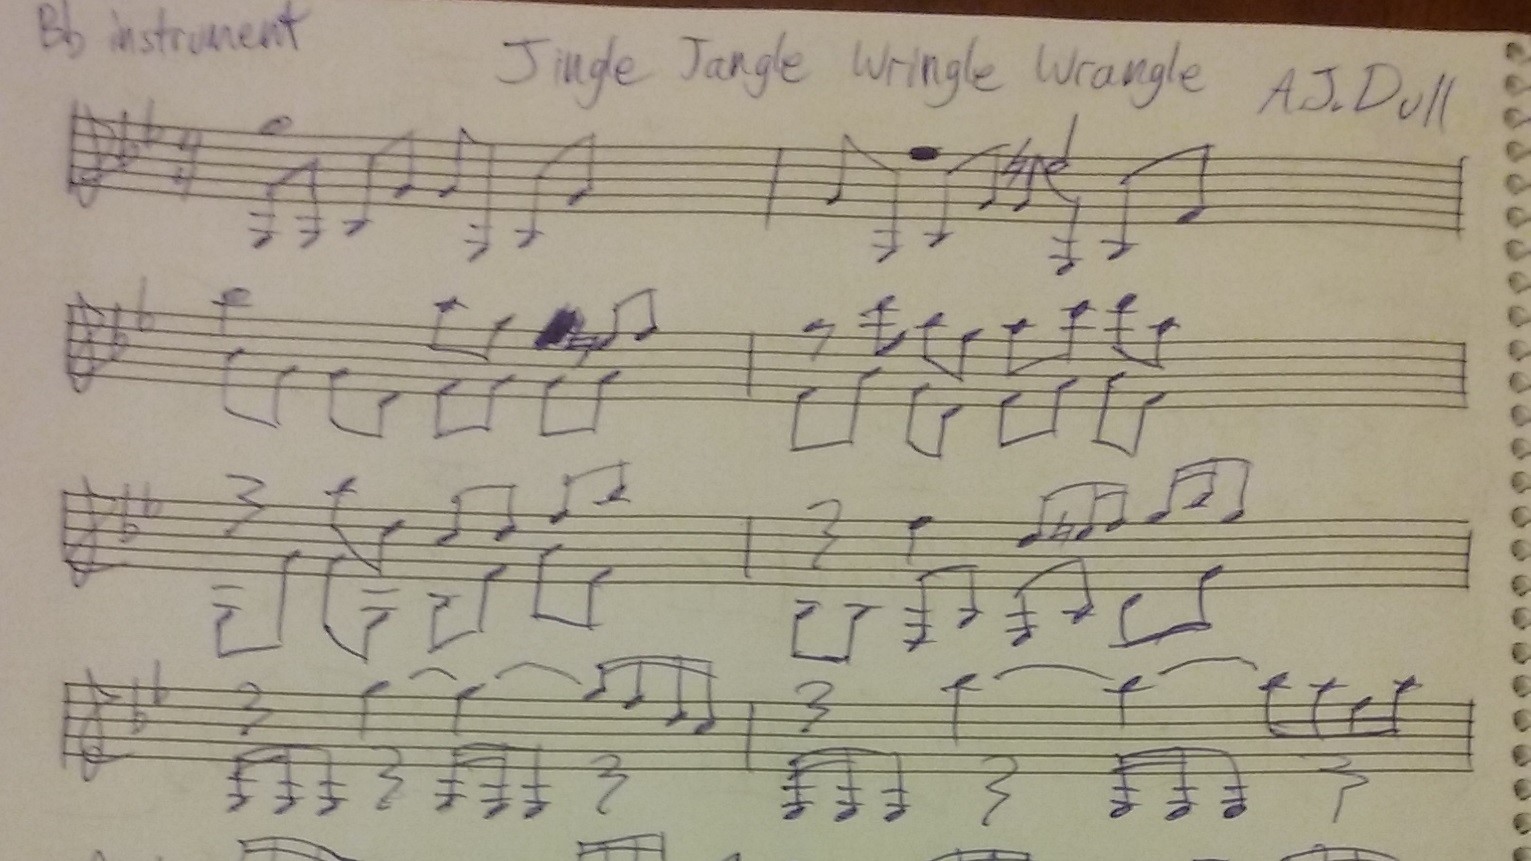 Bb instrument
Jingle Jangle Wringle Wrangle
A.J. Dull